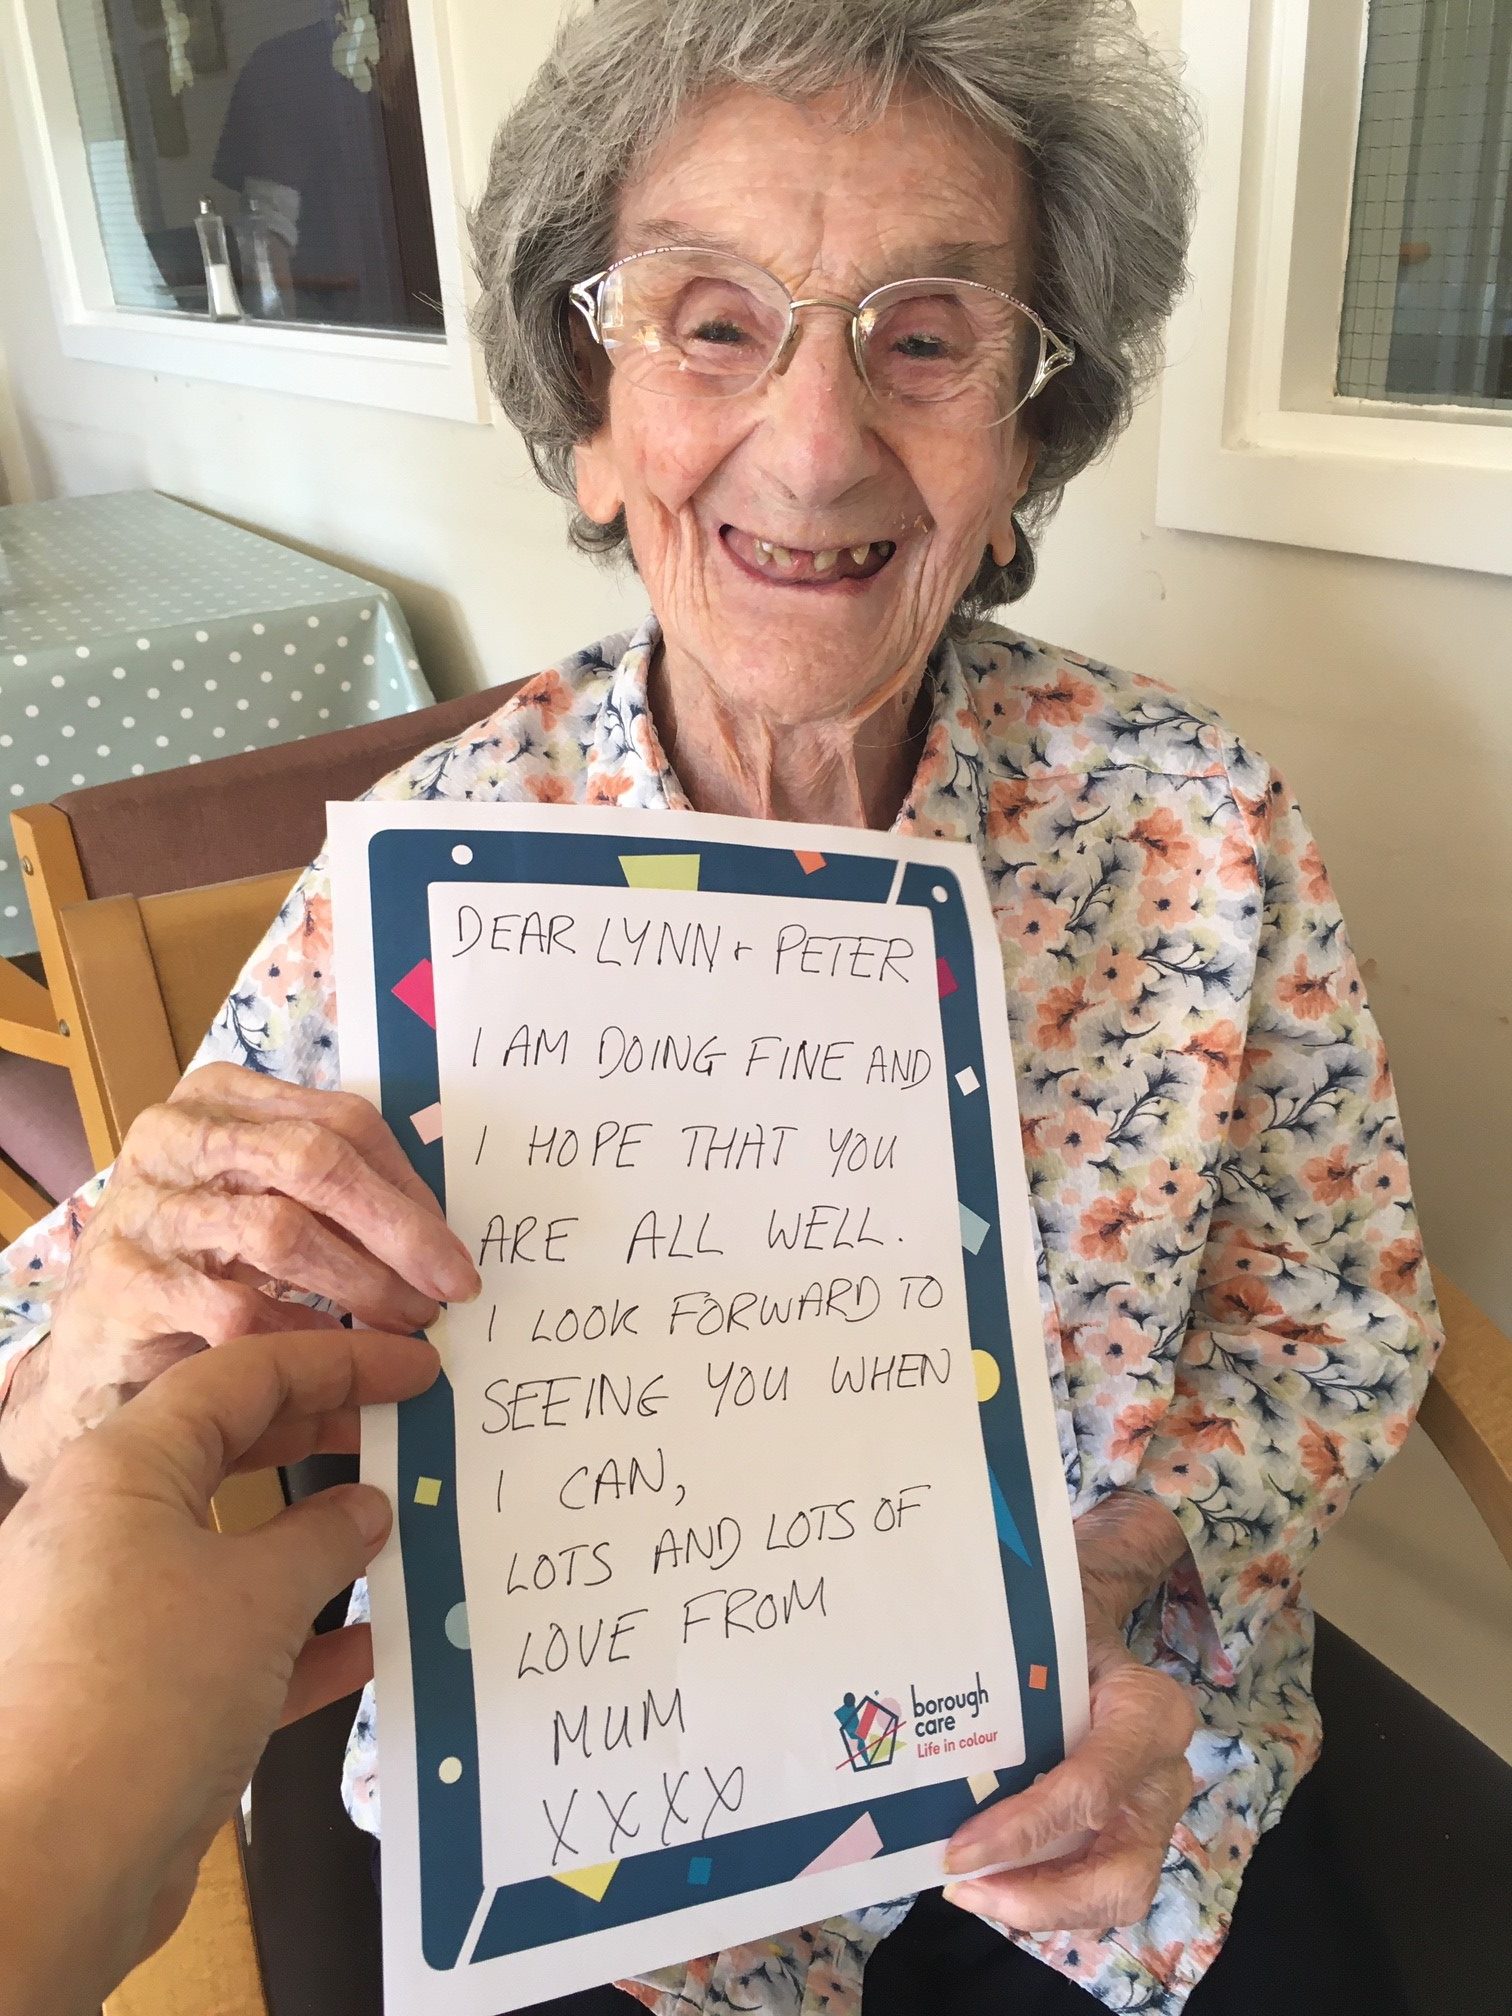 DEAR LYNN + PETER
I AM DOING FINE AND
I HOPE THAT YOU
ARE ALL WELL.
I LOOK FORWARD TO
SEEING YOU WHEN
I CAN,
LOTS AND LOTS OF
LOVE FROM
MUM
XXXX
borough
care
Life in colour